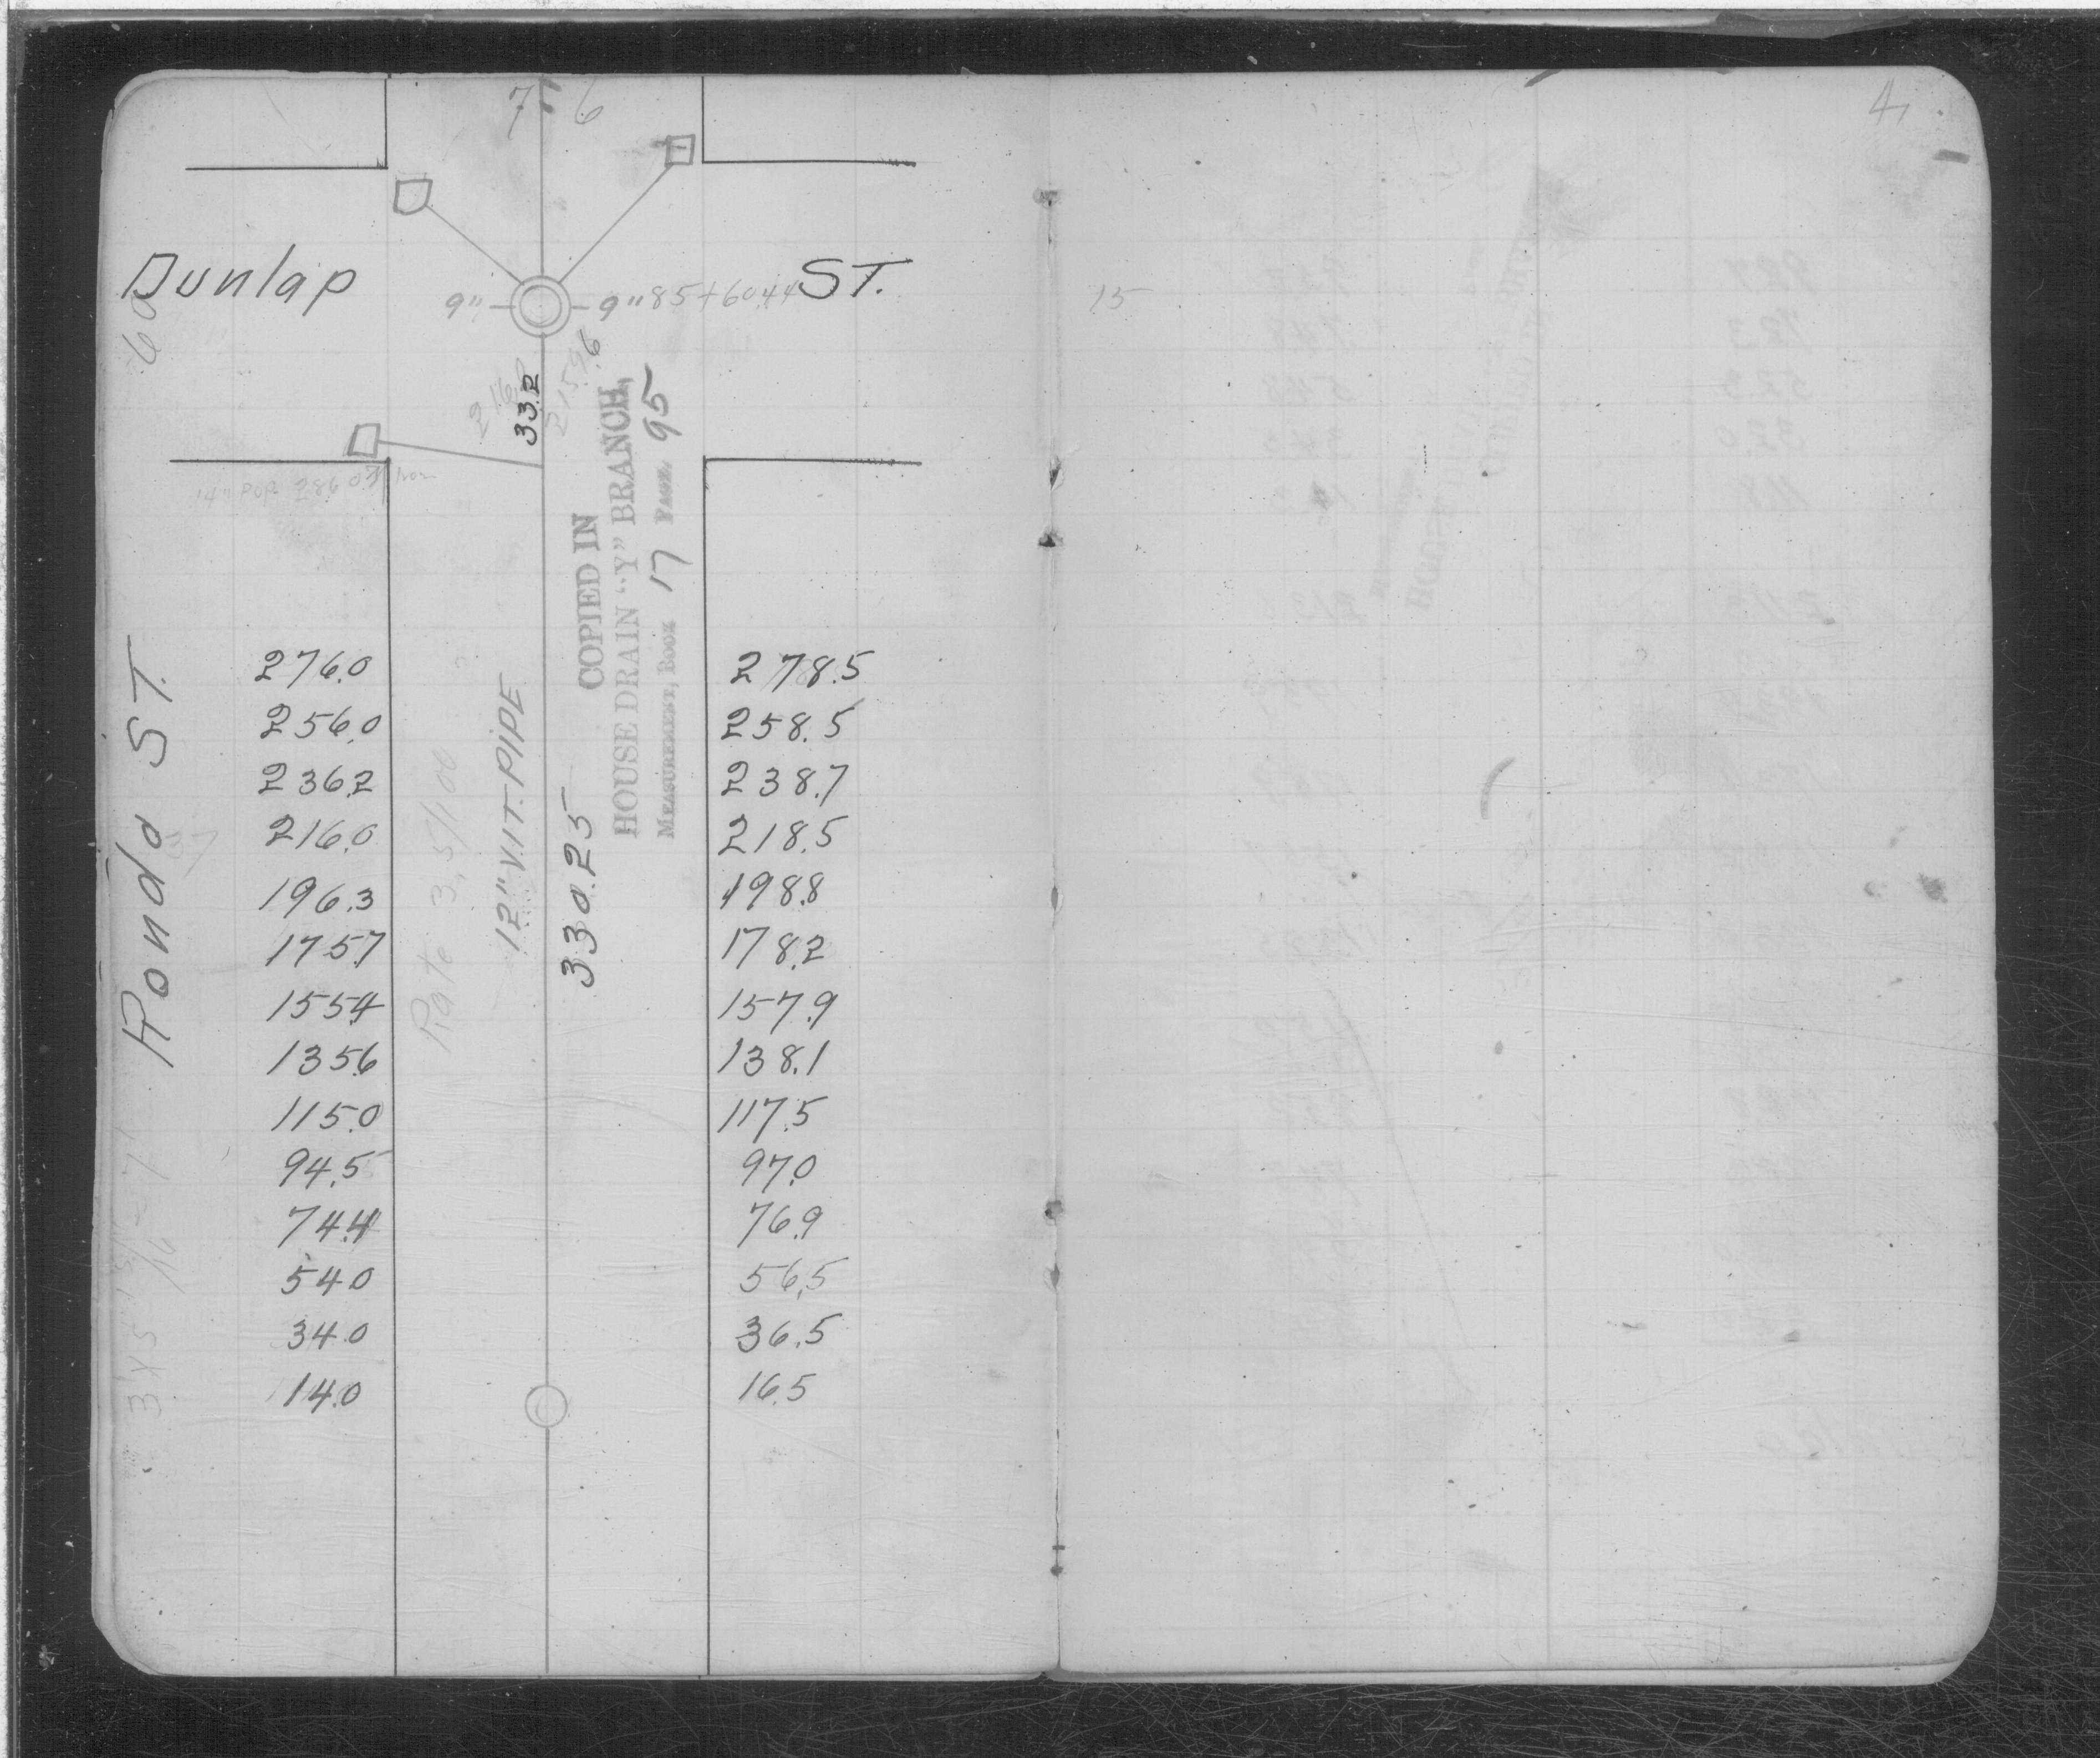 7" 6
4
Dunlap
ST.
60
9"
9" 85+60.44
15
33.2
2159.6
COPIED IN
HOUSE DRAIN "Y" BRANCH,
MEASUREMENT, BOOK 17 PAGE 95
Rondo ST.
Rate 3.5/100
12" VIT. PIPE
330.25
276.0 278.5
256.0 258.5
236.2 238.7
216.0 218.5
196.3 198.8
175.7 178.2
155.4 157.9
135.6 138.1
115.0 117.5
94.5 97.0
74.4 76.9
54.0 56.5
34.0 36.5
14.0 16.5